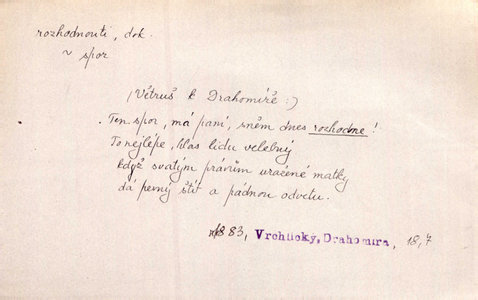 rozhodnouti, dok.
~ spor
(Větruš k Drahomíře:)
Ten spor, má paní, sněm dnes rozhodne!
To nejlépe, hlas lidu velebný
když svatým právům uražené matky
dá pevný štít a pádnou odvetu.
1883, Vrchlický, Drahomíra, 18,7